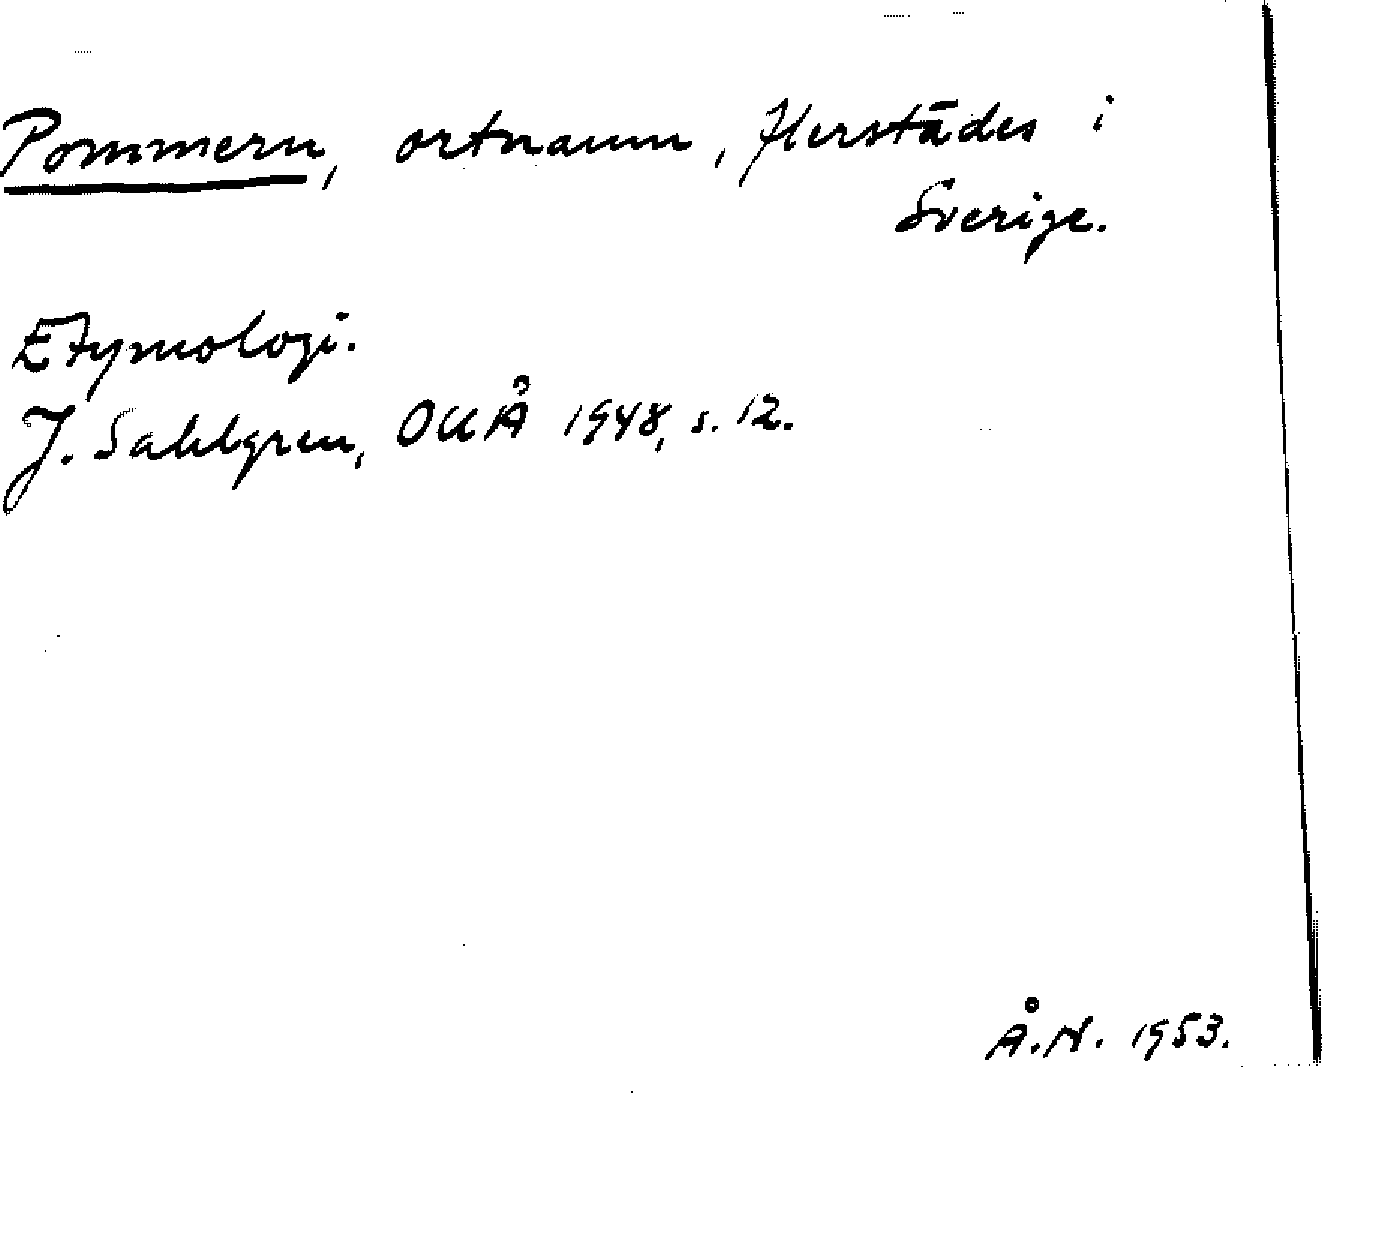 Pommern, ortnamn, flerstädes i
Sverige.
Etymologi.
J. Sahlgren, OUÅ 1948, s. 12.
Å.N. 1953.